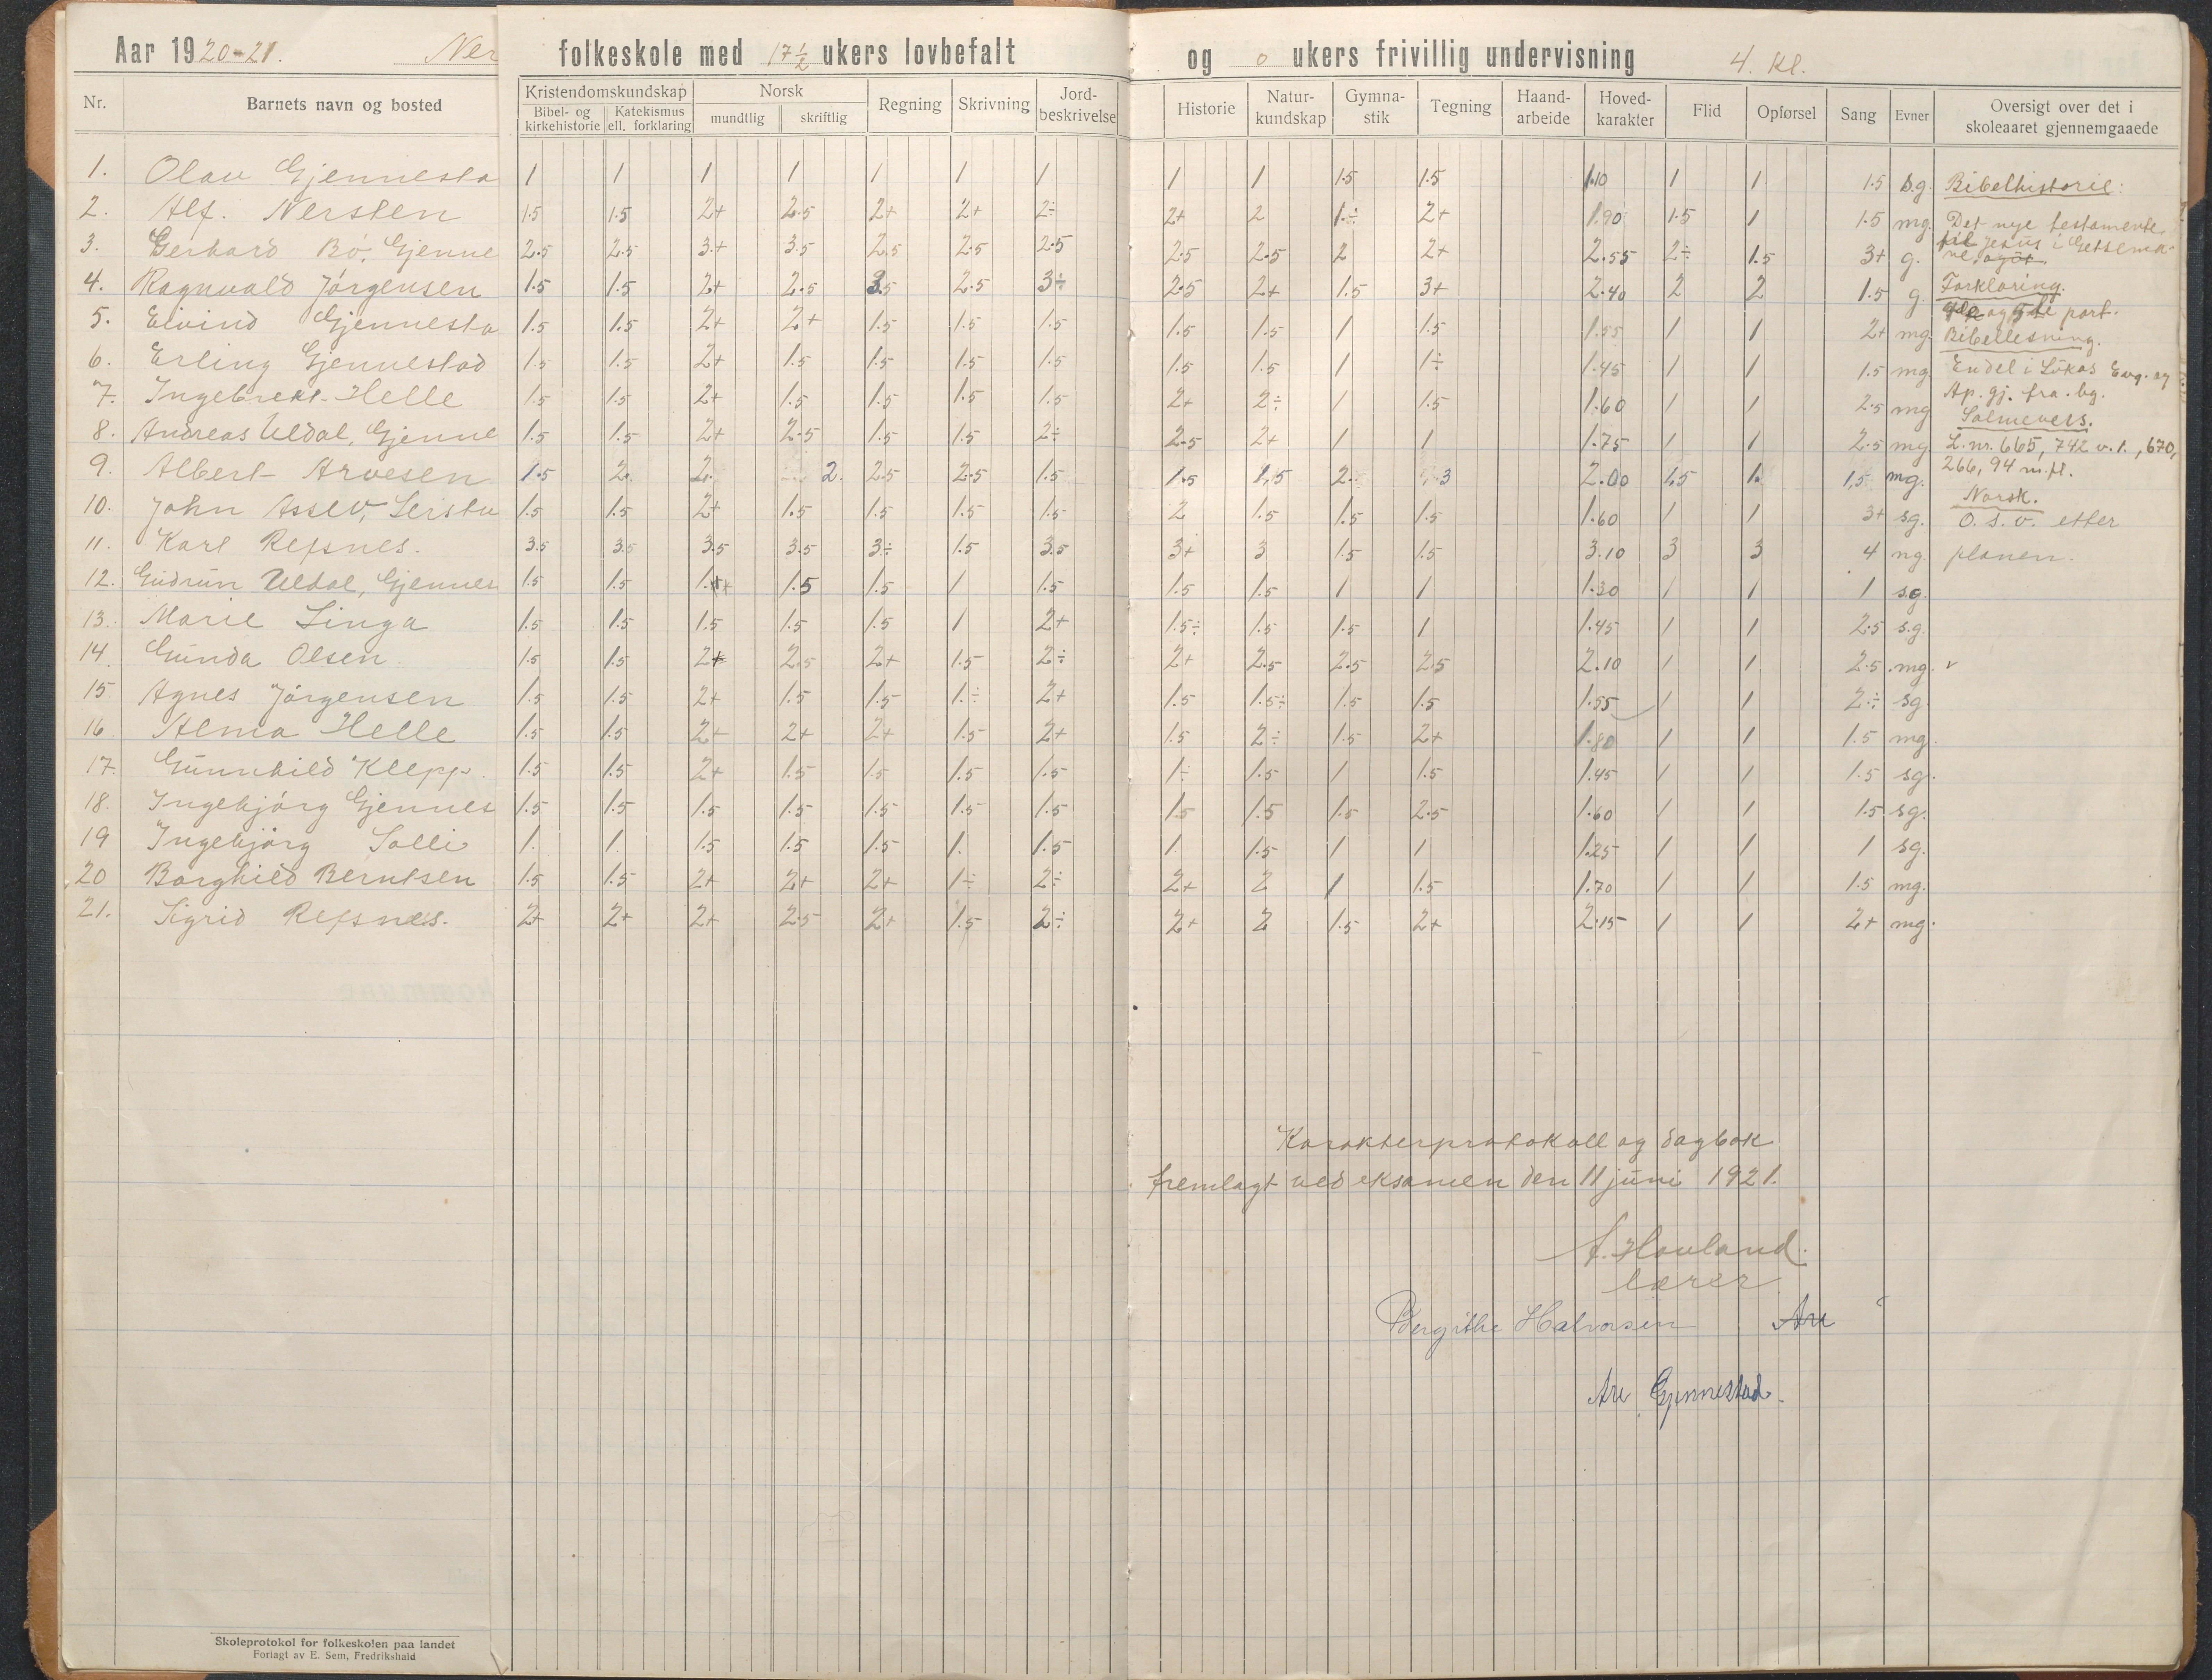 Aar 1920-21. Ner folkeskole med 17 1/2 ukers lovbefalt og 0 ukers frivillig undervisning 4. kl.
Nr. Barnets navn og bosted Kristendomskundskap Bibel- og kirkehistorie Katekismus ell. forklaring Norsk mundtlig skriftlig Regning Skrivning Jord-beskrivelse Historie Natur-kundskap Gymna-stik Tegning Haand-arbeide Hoved-karakter Flid Opførsel Sang Evner Oversigt over det i skoleaaret gjennemgaaede
1. Olav Gjennesta 1 1 1 1 1 1 1 1 1 1.5 1.5 1.10 1 1 1.5 s.g. Bibelhistorie:
2. Alf. Nersten 1.5 1.5 2+ 2.5 2+ 2+ 2÷ 2+ 2 1.÷ 2+ 1.90 1.5 1 1.5 mg. Det nye testamente
3. Gerhard Bö, Gjenne 2.5 2.5 3.+ 3.5 2.5 2.5 2.5 2.5 2.5 2 2+ 2.55 2÷ 1.5 3+ g. til Jesus i Getsema-
ne
4. Ragnvald Jörgensen 1.5 1.5 2+ 2.5 3.5 2.5 3÷ 2.5 2+ 1.5 3+ 2.40 2 2 1.5 g. Forklaring.
og 5te part.
5. Eivind Gjennesta 1.5 1.5 2+ 2+ 1.5 1.5 1.5 1.5 1.5 1 1.5 1.55 1 1 2+ mg. Bibellesning.
6. Erling Gjennestad 1.5 1.5 2+ 1.5 1.5 1.5 1.5 1.5 1.5 1 1÷ 1.45 1 1 1.5 mg. En del i Lukas Evg. og
7. Ingebrekt Helle 1.5 1.5 2+ 1.5 1.5 1.5 1.5 2+ 2÷ 1 1.5 1.60 1 1 2.5 mg Ap. gj. fra. bg.
Salmevers.
8. Andreas Uldal, Gjenne 1.5 1.5 2+ 2.5 1.5 1.5 2÷ 2.5 2+ 1 1 1.75 1 1 2.5 mg L. nr. 665, 742 v. 1., 670,
9. Albert Arvesen 1.5 2. 2. 2. 2.5 2.5 1.5 1.5 1,5 2. 3 2.00 1,5 1. 1,5 mg. 266, 94 m.fl.
Norsk.
10. John Assev, Leistu 1.5 1.5 2+ 1.5 1.5 1.5 1.5 2 1.5 1.5 1.5 1.60 1 1 3+ sg. O. s. v. etter
11. Karl Refsnes. 3.5 3.5 3.5 3.5 3÷ 1.5 3.5 3+ 3 1.5 1.5 3.10 3 3 4 ng. planen.
12. Gudrun Uldal, Gjennes 1.5 1.5 1.5 1.5 1 1.5 1.5 1.5 1 1 1.30 1 1 1 s.g.
13. Marie Linga 1.5 1.5 1.5 1.5 1.5 1 2+ 1.5÷ 1.5 1.5 1 1.45 1 1 2.5 s.g.
14. Gunda Olsen 1.5 1.5 2+ 2.5 2+ 1.5 2÷ 2+ 2.5 2.5 2.5 2.10 1 1 2.5 mg.
15 Agnes Jörgensen 1.5 1.5 2+ 1.5 1.5 1.÷ 2+ 1.5 1.5÷ 1.5 1.5 1.55 1 1 2.÷ sg.
16 Alma Helle 1.5 1.5 2+ 2+ 2+ 1.5 2+ 1.5 2÷ 1.5 2+ 1.80 1 1 1.5 mg.
17. Gunnhild Klepp. 1.5 1.5 2+ 1.5 1.5 1.5 1.5 1÷ 1.5 1 1.5 1.45 1 1 1.5 sg.
18. Ingebjörg Gjennes 1.5 1.5 1.5 1.5 1.5 1.5 1.5 1.5 1.5 1.5 2.5 1.60 1 1 1.5 sg.
19 Ingebjörg Solli 1. 1. 1.5 1.5 1.5 1. 1.5 1. 1.5 1 1 1.25 1 1 1 sg.
20 Borghild Berntsen 1.5 1.5 2+ 2+ 2+ 1÷ 2÷ 2+ 2 1 1.5 1.70 1 1 1.5 mg.
21. Sigrid Refsnes. 2+ 2+ 2+ 2.5 2+ 1.5 2÷ 2+ 2 1.5 2+ 2.15 1 1 2+ mg.
Karakterprotokoll og dagbok
fremlagt ved eksamen den 11 juni 1921.
A. Hovland.
lærer
Bergithe Halvorsen Are
Are Gjennestad.
Skoleprotokol for folkeskolen paa landet
Forlagt av E. Sem, Fredrikshald